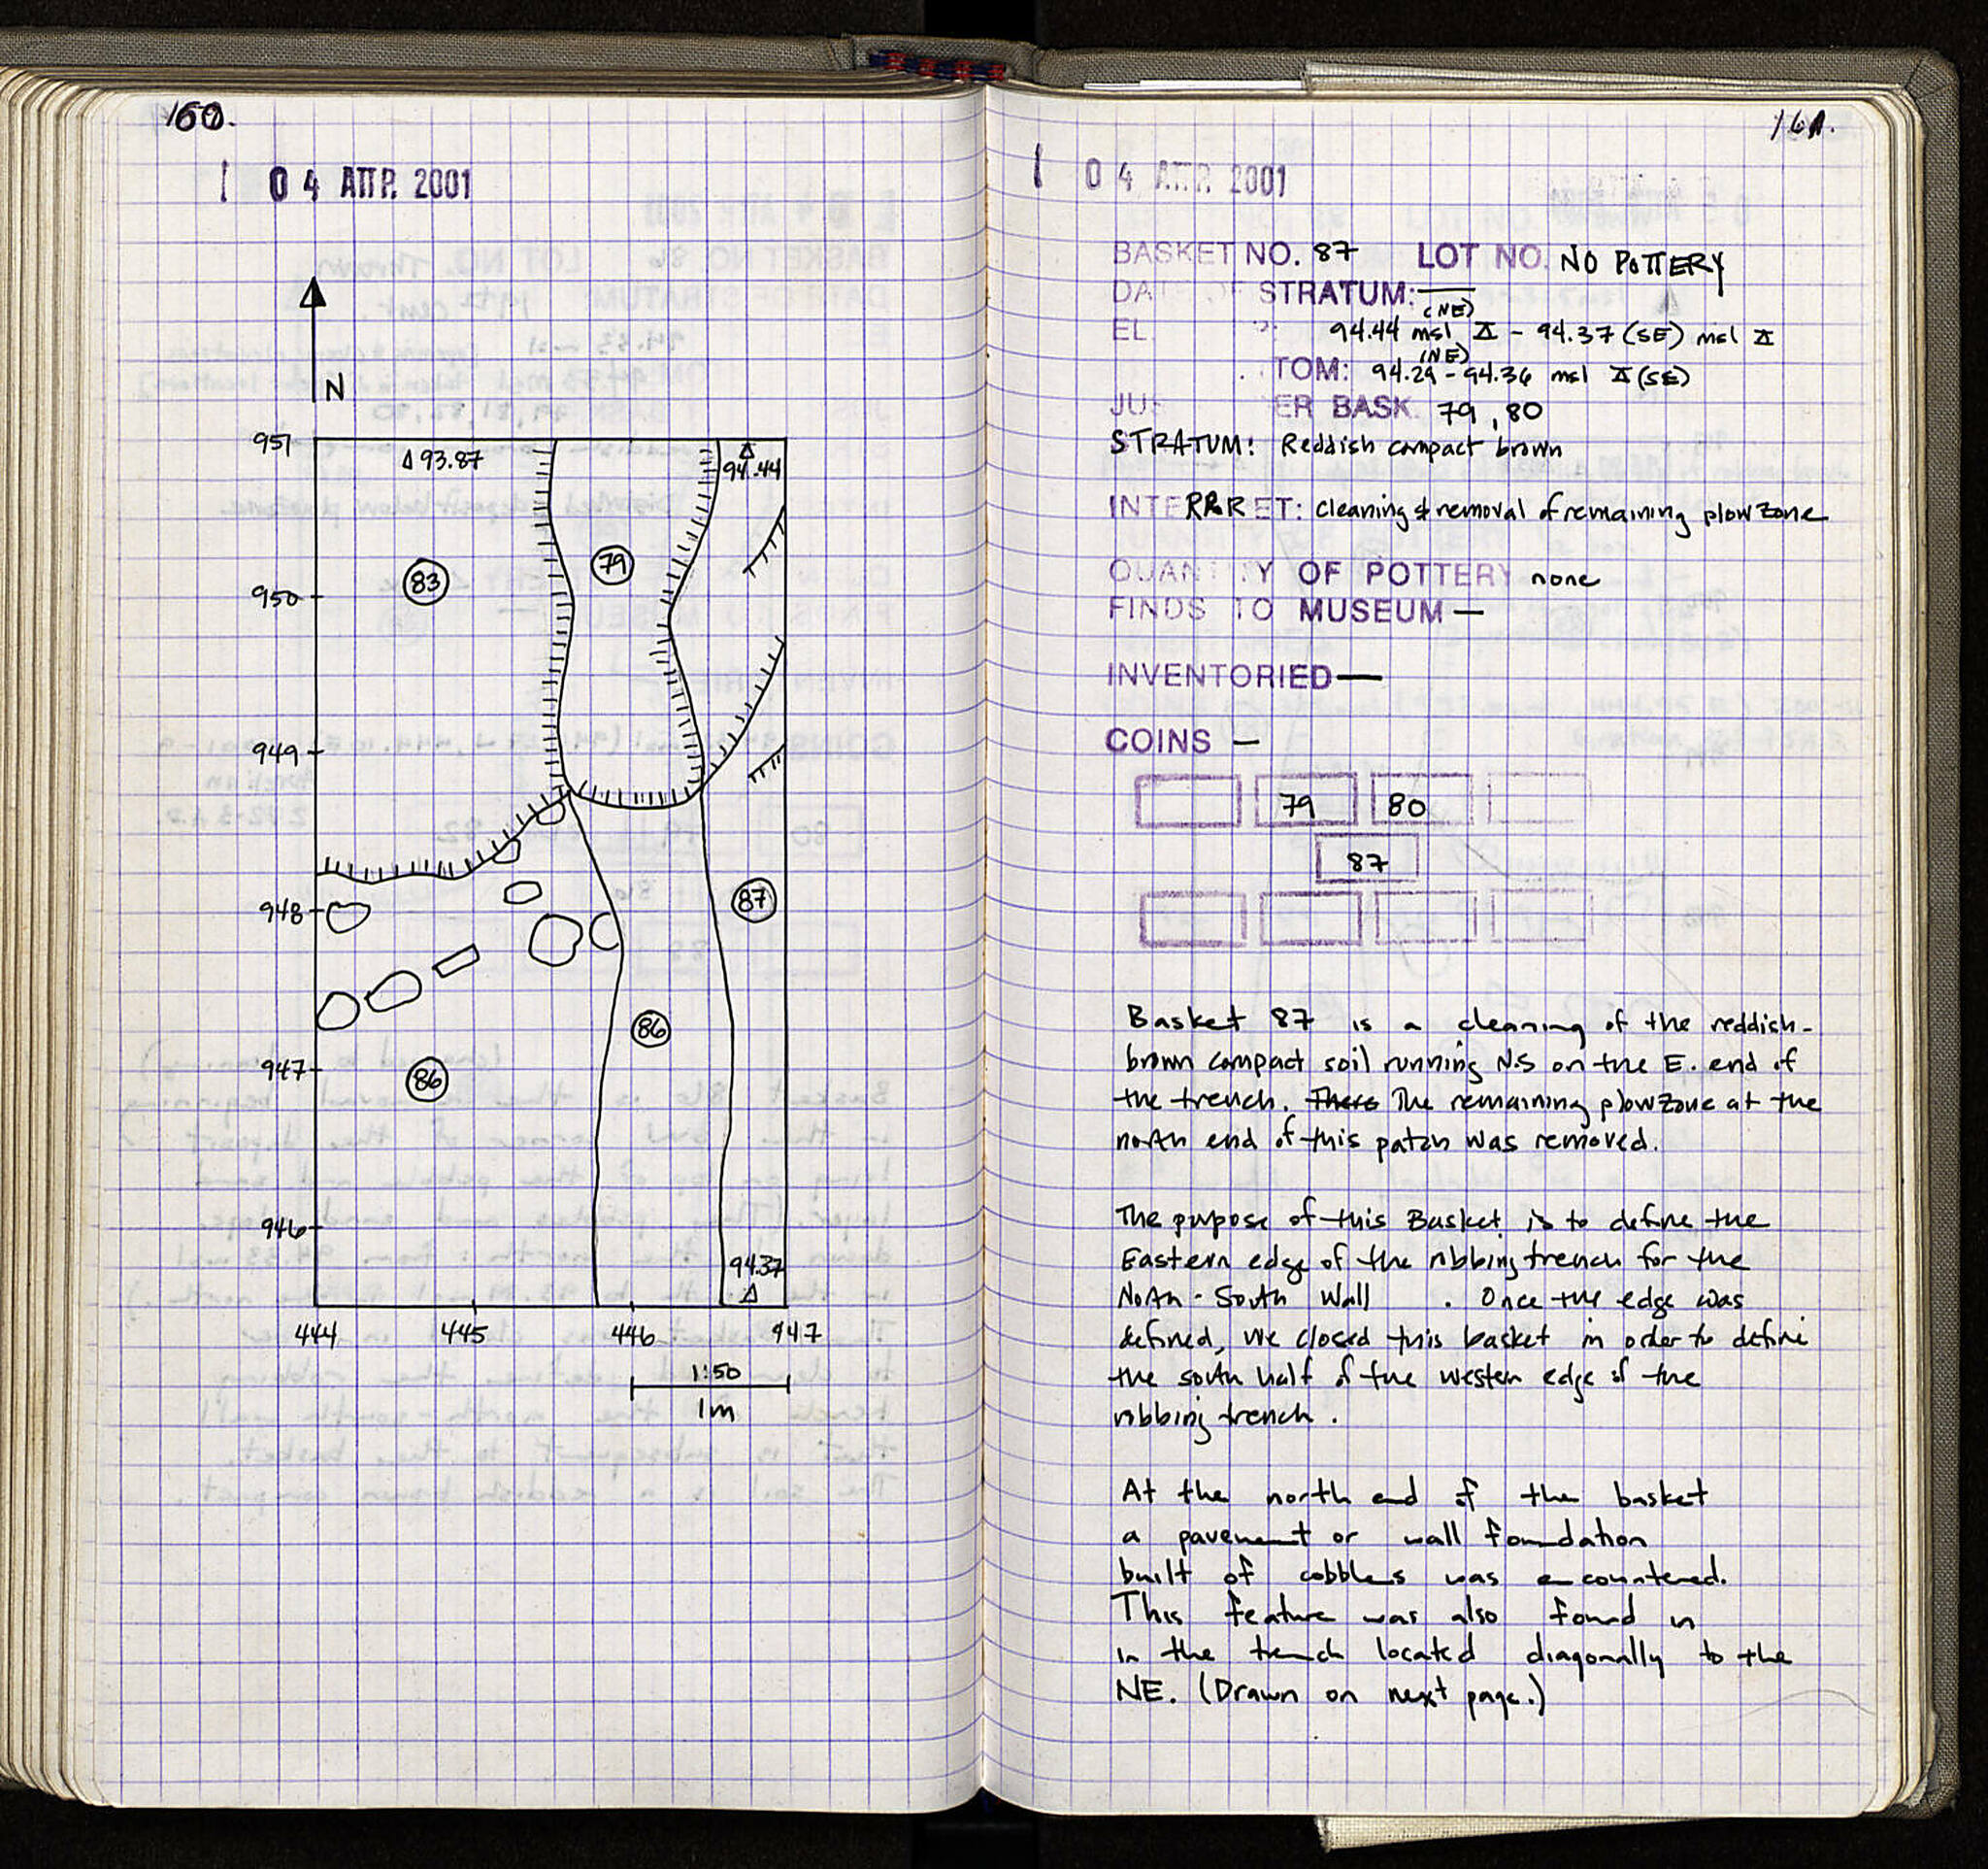 160.
04 ΑΠΡ. 2001
N
951
Δ 93.87
94.44
79
83
950
949
87
948
86
947
86
946
94.37
444 445 446 947
1:50
1m
161.
04 ΑΠΡ. 2001
BASKET NO. 87 LOT NO. NO POTTERY
DATE OF STRATUM: —
(NE)
EL. 94.44 msl - 94.37 (SE) msl
(NE)
TOM: 94.29 - 94.36 msl (SE)
JUS ER BASK. 79, 80
STRATUM: Reddish compact brown
INTERRRET: cleaning & removal of remaining plow zone
QUANTITY OF POTTERY none
FINDS TO MUSEUM —
INVENTORIED —
COINS —
79 80
87
Basket 87 is a cleaning of the reddish-
brown compact soil running N.S on the E. end of
the trench. There The remaining plow zone at the
north end of this patch was removed.
The pupose of this Basket is to define the
Eastern edge of the robbing trench for the
North - South Wall . Once the edge was
defined, we closed this basket in order to define
the south half of the western edge of the
robbing trench .
At the north end of the basket
a pavement or wall foundation
built of cobbles was encountered.
This feature was also found in
in the trench located diagonally to the
NE. (Drawn on next page.)